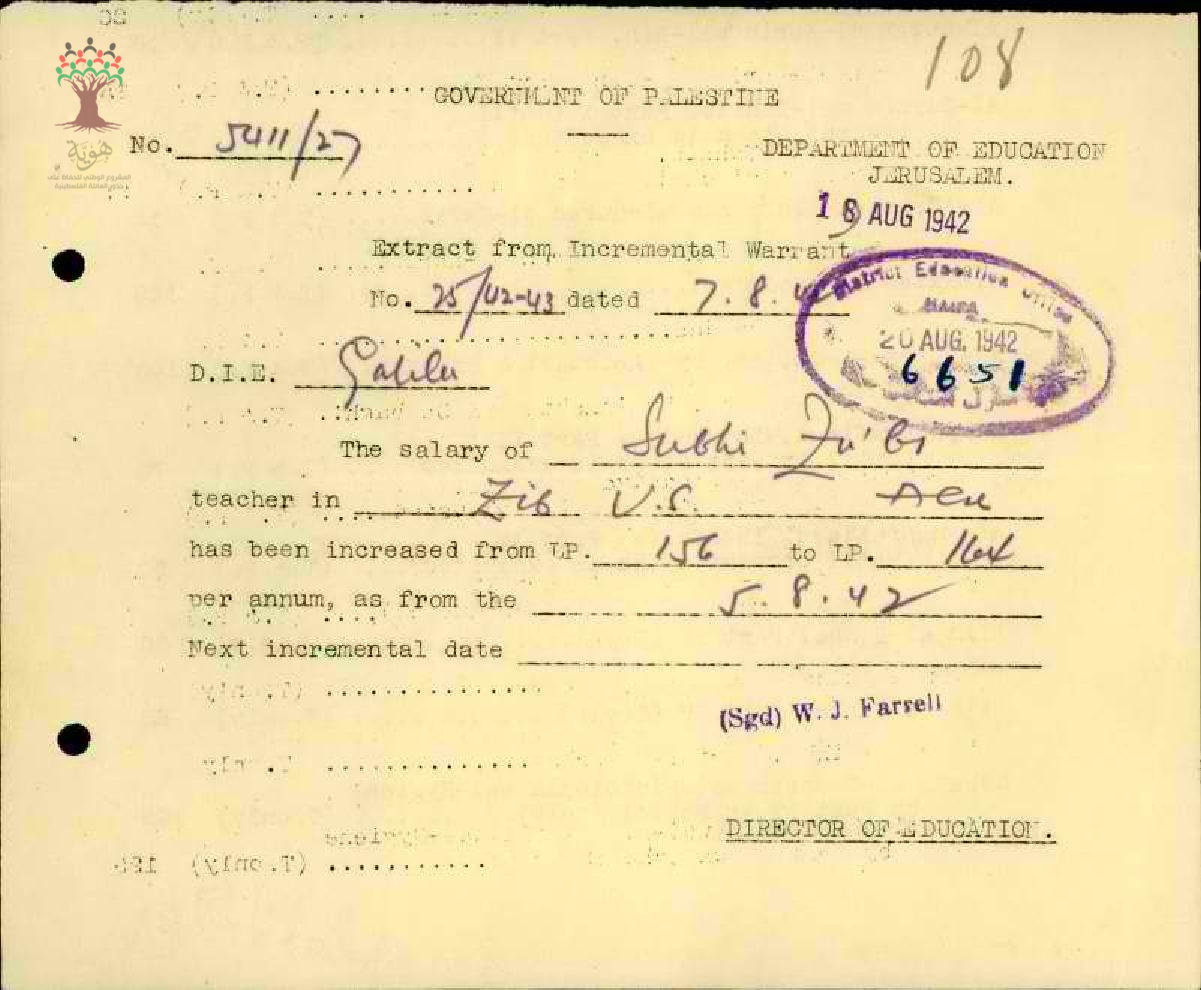 108
GOVERNMENT OF PALESTINE
هوية
المشروع الوطني للحفاظ على
جذور العائلة الفلسطينية
No. 5411/27
DEPARTMENT OF EDUCATION
JERUSALEM.
18 AUG 1942
Extract from Incremental Warrant
No. 25/42-43 dated 7.8.42
District Education Office
HAIFA
20 AUG. 1942
6651
D.I.E. Galilee
The salary of Subhi Zu'bi
teacher in Zib V.S. Acre
has been increased from LP. 156 to LP. 164
per annum, as from the 5.8.42
Next incremental date
(Sgd) W. J. Farrell
DIRECTOR OF EDUCATION.